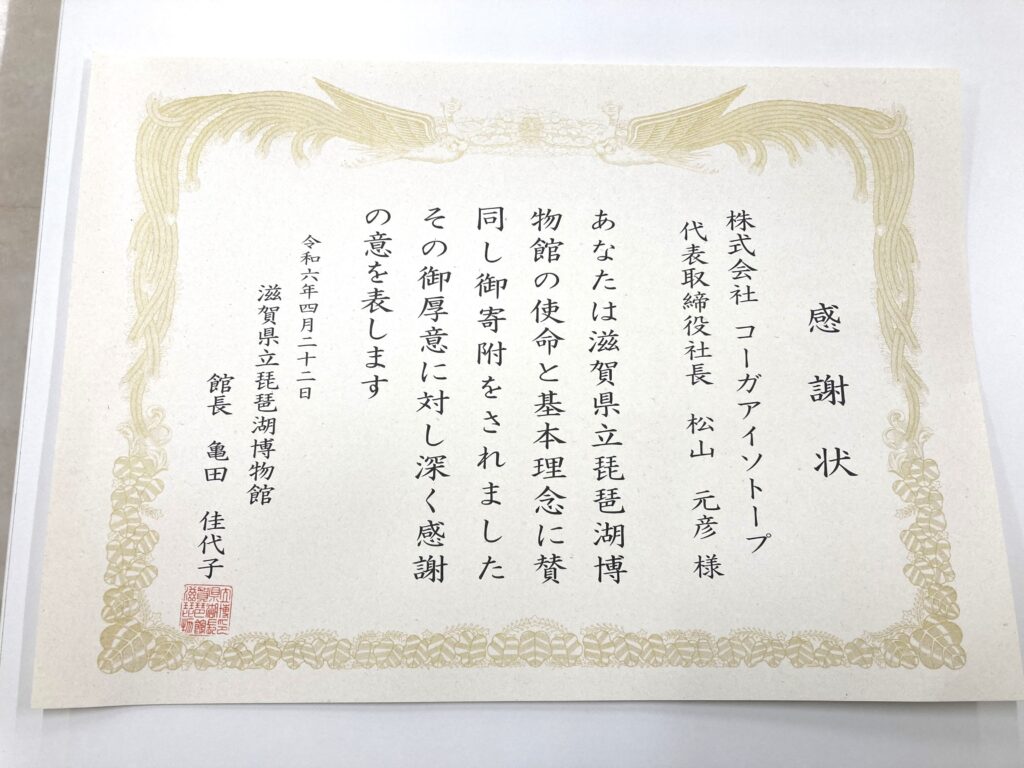 感謝状
株式会社 コーガアイソトープ
代表取締役社長 松山 元彦 様
あなたは滋賀県立琵琶湖博
物館の使命と基本理念に賛
同し御寄附をされました
その御厚意に対し深く感謝
の意を表します
令和六年四月二十二日
滋賀県立琵琶湖博物館
館長 亀田 佳代子